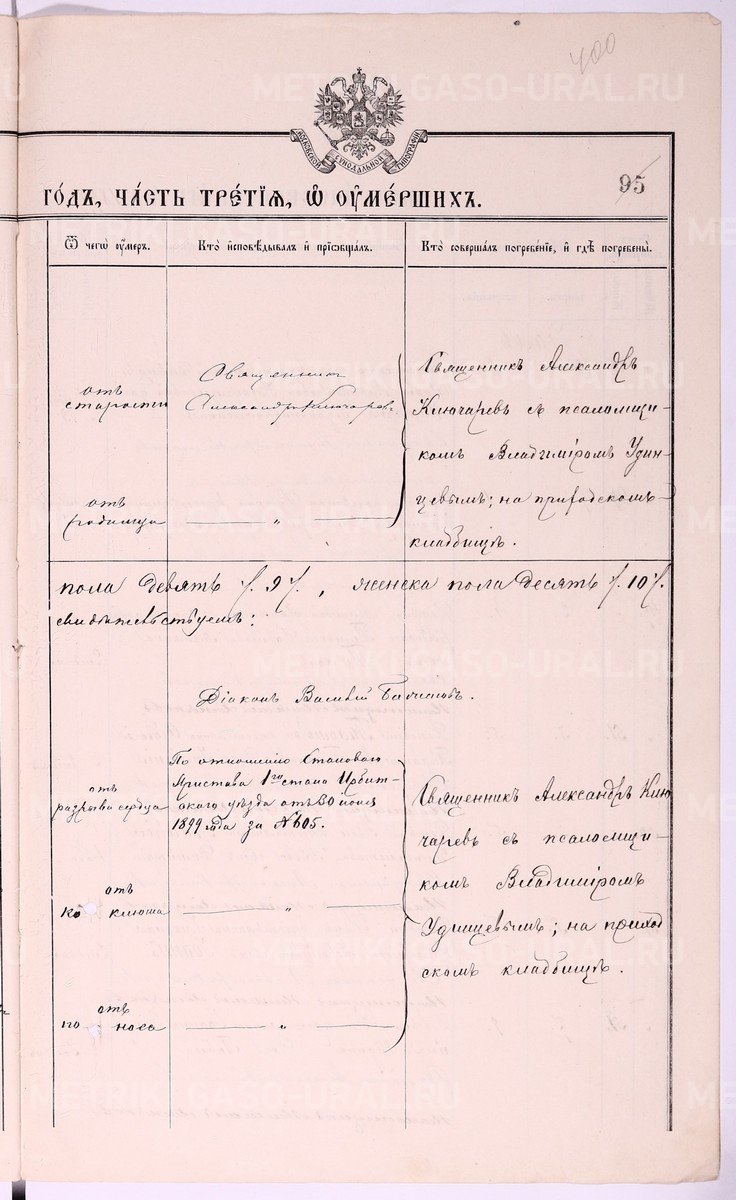 400
METRIKI.GASO-URAL.RU
МОСКОВСКОЙ СѴНОДАЛЬНОЙ ТИПОГРАФІИ
95
ГО́ДЪ, ЧА́СТЬ ТРЕ́ТІѦ, Ѡ ОУМЕ́РШИХЪ.
Ѿ чегѡ оумеръ.
Кто исповѣдывалъ и пріобщалъ.
Кто совершалъ погребеніе, и гдѣ погребены.
отъ
старости
Священникъ
Александръ Ключаревъ
Священникъ Александръ
Ключаревъ съ псаломщи-
комъ Владиміромъ Удин-
цевымъ; на приходскомъ
кладбищѣ.
отъ
родимца
— „ —
пола девять /. 9 /. , женска пола десять /. 10 /.
свидѣтельствуемъ:
Діаконъ Василій
отъ
разрыва сердца
По отношенію Становаго
Пристава 1го стана Ирбит-
скаго уѣзда отъ 30 іюля
1899 года за № 605.
Священникъ Александръ Клю-
чаревъ съ псаломщи-
комъ Владиміромъ
Удинцевымъ; на приход-
скомъ кладбищѣ.
отъ
ко клюша
— „ —
отъ
по носа
— „ —